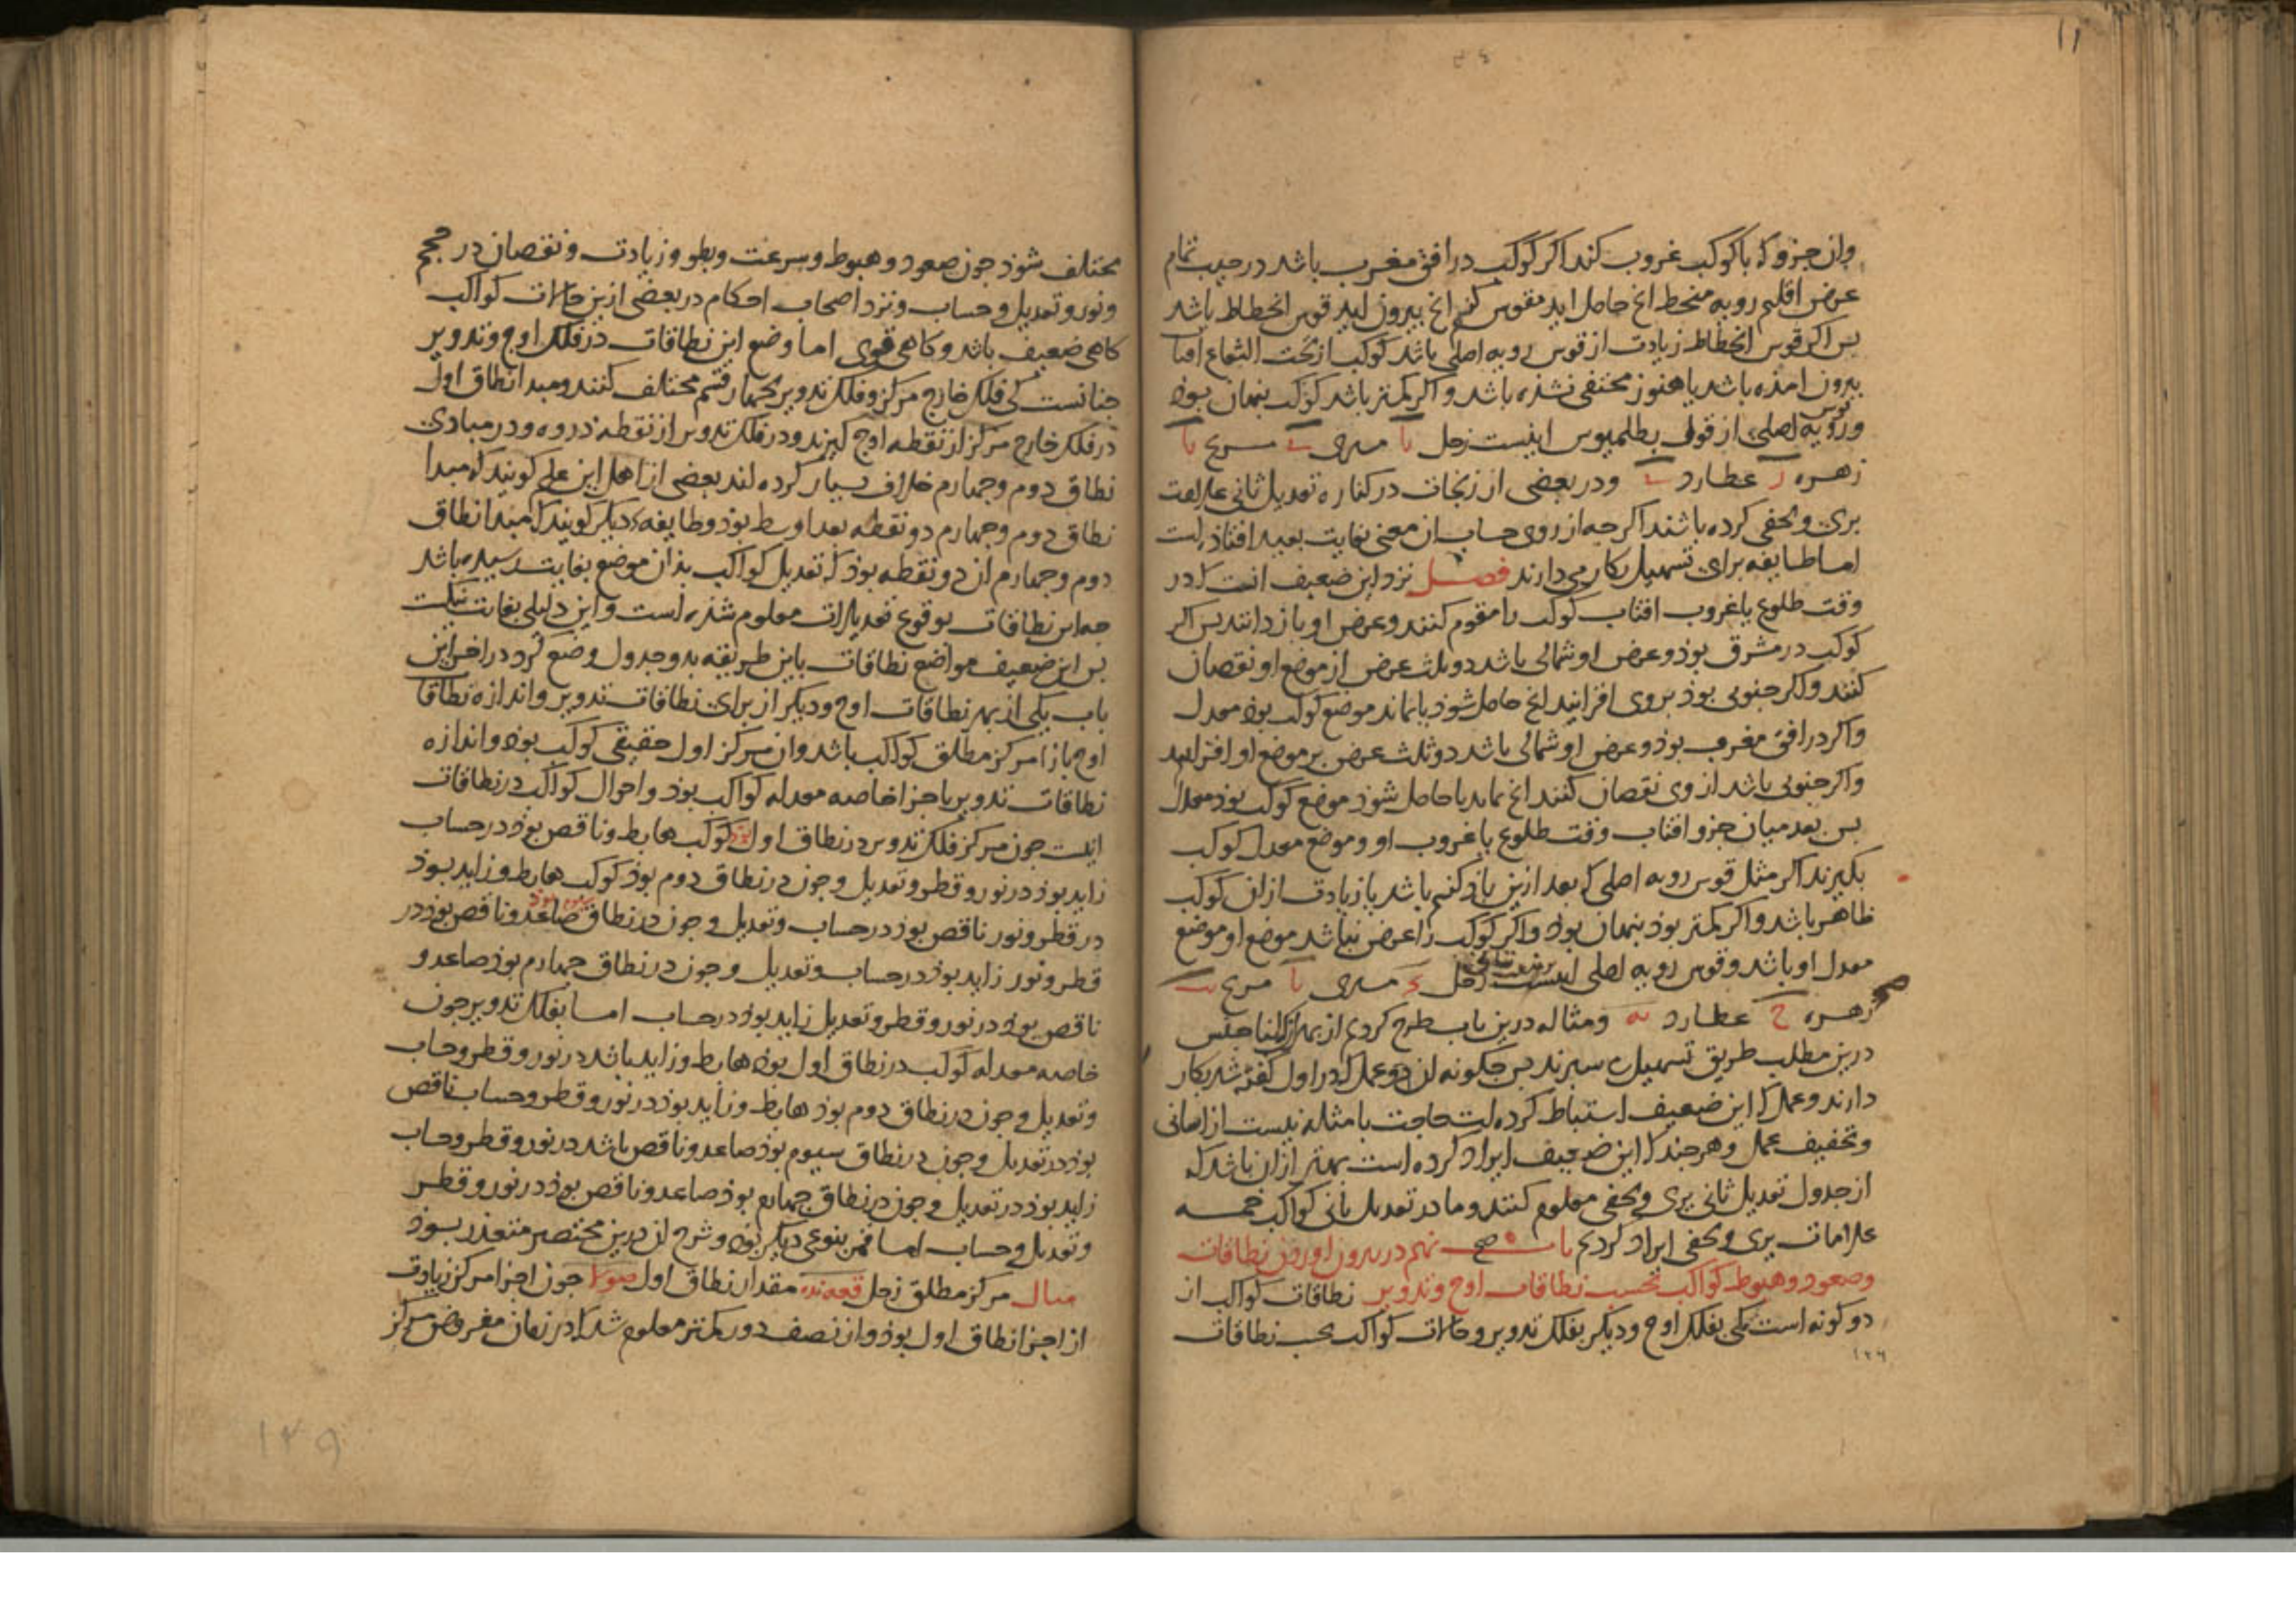 وان جزو که با کوکب غروب کند اکر کوکب در افق مغرب باشد در جیب تمام
عرض اقلیم رویه منحط انج حاصل اید مقوس کنیم انج بیرون اید قوس انحطاط باشد
بس اکر قوس انحطاط زیادت از قوس رویه اصلی باشد کوکب از تحت الشعاع
بیرون امذه باشد یا هنوز مختفی نشذه باشد و اکر کمتر باشد کوکب بنهان بوذ
و قوس رویه اصلی از قول بطلمیوس اینست زحل یا مشتری ی مریخ یا
زهره ز عطارد ی و در بعضی از زیجات در کناره تعدیل ثانی علامت
یری و یخفی کرده باشند اکرجه از روی حساب ان معنی بغایت بعید افتاذ است
اما طایفه برای تسهیل بکار می دارند فصل نزد این ضعیف انست که در
وقت طلوع یا غروب افتاب کوکب را مقوم کنند و عرض او باز دانند بس اکر
کوکب در مشرق بوذ و عرض او شمالی باشد دو ثلث عرض از موضع او نقصان
کنند و اکر جنوبی بوذ بروی افزایند انج حاصل شوذ یا بماند موضع کوکب بوذ معدل
و اکر در افق مغرب بوذ و عرض او شمالی باشد دو ثلث عرض بر موضع او افزایند
و اکر جنوبی باشد از وی نقصان کنند انج بماند یا حاصل شوذ موضع کوکب بوذ معدل
بس بعد میان جزو افتاب وقت طلوع یا غروب او و موضع معدل کوکب
بکیرند اکر مثل قوس رویه اصلی که بعد ازین یاذ کنیم باشد یا زیادت از ان کوکب
ظاهر باشد و اکر کمتر بوذ بنهان بوذ و اکر کوکب را عرض نباشد موضع او موضع
معدل او باشد و قوس رویه اصلی اینست زحل مشتری یا مریخ
زهره ح عطارد یه و مثاله درین باب طرح کردیم از بهر انک
درین مطلب طریق تسهیل سبرند بس جکونه ان دو عمل که در اول کفته شد بکار
دارند و عمل که این ضعیف استنباط کرده است حاجت بامثله نیست از اسانی
و تخفیف عمل و هرجند که این ضعیف ایراد کرده است بهتر از ان باشد که
از جدول تعدیل ثانی یری و یخفی معلوم کنند و ما در تعدیل ثانی کواکب خمسه
علامات یری و یخفی ایراد کردیم صح باب نهم در بیرون اوردن نطاقات
وصعود و هبوط کواکب بحسب نطاقات اوج و تدویر نطاقات کواکب از
دو کونه است یکی بفلک اوج و دیکر بفلک تدویر و حالات کواکب بحسب نطاقات
مختلف شوذ جون صعود و هبوط و سرعت و بطو و زیادت و نقصان در حجم
و نور و تعدیل و حساب و نزد اصحاب احکام در بعضی ازین حالات کواکب
کاهی ضعیف باشد و کاهی قوی اما وضع این نطاقات در فلک اوج و تدویر
جنانست کی فلک خارج مرکز و فلک تدویر بجهار قسم مختلف کنند و مبدا نطاق اول
در فلک خارج مرکز از نقطه اوج کیرند و در فلک تدویر از نقطه ذروه و در مبادی
نطاق دوم و جهارم خلاف بسیار کرده اند بعضی از اهل این علم کویند که مبدا
نطاق دوم و جهارم دو نقطه بعد اوسط بوذ و طایفه دیکر کویند که مبدا نطاق
دوم و جهارم ان دو نقطه بوذ که تعدیل کواکب بذان موضع بغایت رسیده باشد
جه این نطاقات بوقوع تعدیلات معلوم شذه است و این دلیلی بغایت نیکست
بس این ضعیف مواضع نطاقات باین طریقه بدو جدول وضع کرد در اخر این
باب یکی از بهر نطاقات اوج و دیکر از برای نطاقات تدویر و اندازه نطاقات
اوج بازا مرکز مطلق کواکب باشد وان مرکز اول حقیقی کوکب بوذ و اندازه
نطاقات تدویر باجزا خاصه معدله کواکب بوذ و احوال کواکب در نطاقات
اینست جون مرکز فلک تدویر در نطاق اول بوذ کوکب هابط و ناقص بوذ در حساب
زاید بوذ در نور و قطر و تعدیل و جون در نطاق دوم بوذ کوکب هابط و زاید بوذ
در قطر و نور ناقص بوذ در حساب و تعدیل و جون در نطاق سیوم بوذ صاعد و ناقص بوذ در
قطر و نور زاید بوذ در حساب و تعدیل و جون در نطاق جهارم بوذ صاعد و
ناقص بوذ در نور و قطر و تعدیل زاید بوذ در حساب اما بفلک تدویر جون
خاصه معدله کوکب در نطاق اول بوذ هابط و زاید باشد در نور و قطر و حساب
و تعدیل و جون در نطاق دوم بوذ هابط و زاید بوذ در نور و قطر و حساب ناقص
بوذ در تعدیل و جون در نطاق سیوم بوذ صاعد و ناقص باشد در نور و قطر و حساب
زاید بوذ در تعدیل و جون در نطاق جهارم بوذ صاعد و ناقص بوذ در نور و قطر
و تعدیل و حساب اما قمر بنوعی دیکر بوذ و شرح ان درین مختصر متعذر بوذ
مثال مرکز مطلق زحل مقدار نطاق اول جون اجزا مرکز زیادت
از اجزا نطاق اول بوذ و از نصف دور کمتر معلوم شد که در زمان مفروض مرکز
۱۴۹